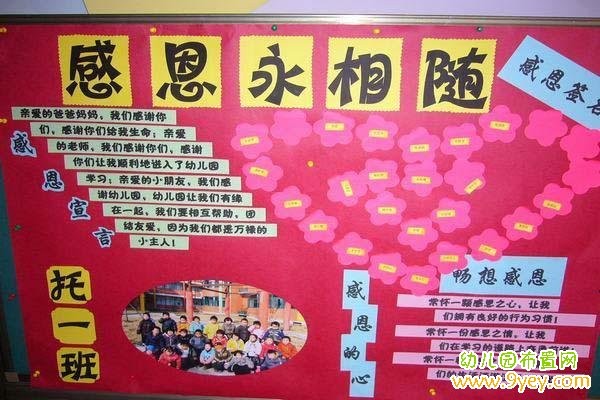 感恩永相随
感恩签名
感恩宣言
亲爱的爸爸妈妈，我们感谢你
们，感谢你们给我生命；亲爱
的老师，我们感谢你们，感谢
你们让我顺利地进入了幼儿园
学习；亲爱的小朋友，我们感
谢幼儿园，幼儿园让我们有缘
在一起，我们要相互帮助，团
结友爱，因为我们都是万禄的
小主人！
托一班
感恩的心
畅想感恩
常怀一颗感恩之心，让我
们拥有良好的行为习惯！
常怀一份感恩之情，让我
们在学习的道路上
常怀一
幼儿园布置网
www.9yey.com